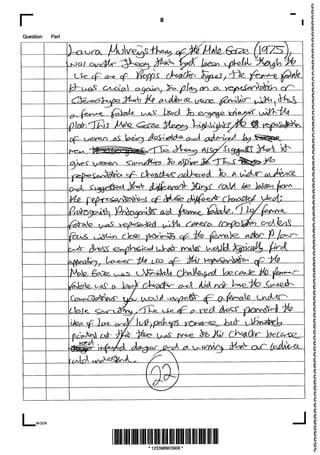 8
Question Part
Laura Mulveys theory of the Male Gaze (1975),
was another theory that had been upheld through the
use of one of Propps character types, the femme fatale.
It was crucial again, to play on a representation or
stereotype that the audience were familiar with, thus
a femme fatale was used to engage viewer with the
plot. This Male Gaze theory highlights the representation
of women as being desirable and admired by
men. The theory also suggests that it
gives women something to aspire to. This the
representation of characters adhered to a wider audience
and suggested that different things could be taken from
the representations of these different characters used;
Protagonist, Antagonist and femme fatale. The femme
fatale was represented with camera composition and lens
focus when close pointing at the female after P low
cut dress emphasised what males would typically find
appealing, however the use of this representation of the
Male Gaze was ultimately challenged because the femme
fatale was a bad character and did not have the smooth
connotations you would expect of a female under
close scrutiny. The use of a red dress promoted the
idea of love and lust, perhaps romance, but ultimately
pointed out that there was more to this character because
red inferred danger and a warning that our audience
could understand.
22